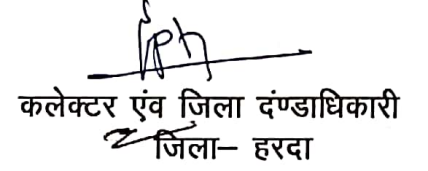 कलेक्टर एंव जिला दंण्डाधिकारी
जिला– हरदा